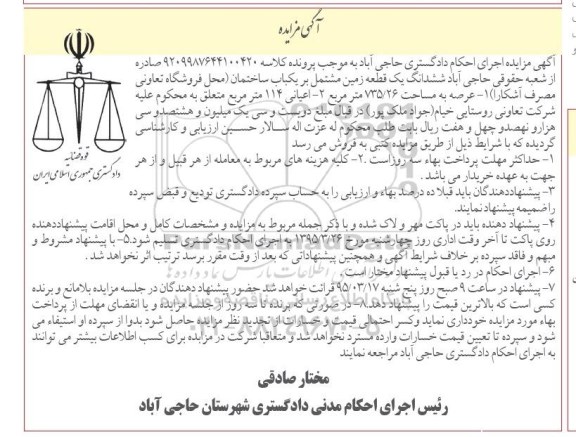 آگهی مزایده
آگهی مزایده اجرای احکام دادگستری حاجی آباد به موجب پرونده کلاسه ۹۲۰۹۹۸۷۶۴۴۱۰۰۴۲۰ صادره
از شعبه حقوقی حاجی آباد ششدانگ یک قطعه زمین مشتمل بر یکباب ساختمان (محل فروشگاه تعاونی
مصرف آشکارا)۱- عرصه به مساحت ۷۳۵/۲۶ متر مربع ۲- اعیانی ۱۱۴ متر مربع متعلق به محکوم علیه
شرکت تعاونی روستایی خیام(جواد ملک پور) در قبال مبلغ دویست و سی یک میلیون و هشتصدو سی
هزارو نهصدو چهل و هفت ریال بابت طلب محکوم له عزت اله سالار حسینی ارزیابی و کارشناسی
گردیده که با شرایط ذیل از طریق مزایده کتبی به فروش می رسد
۱- حداکثر مهلت پرداخت بهاء سه روز است .۲- کلیه هزینه های مربوط به معامله از هر قبیل و از هر
جهت به عهده خریدار می باشد .
۳- پیشنهاددهندگان باید قبلا ده درصد بهاء و ارزیابی را به حساب سپرده دادگستری تودیع و قبض سپرده
را ضمیمه پیشنهاد نمایند.
۴- پیشنهاد دهنده باید در پاکت مهر و لاک شده و با ذکر جمله مربوط به مزایده و مشخصات کامل و محل اقامت پیشنهاددهنده
روی پاکت تا آخر وقت اداری روز چهارشنبه مورخ ۱۳۹۵/۳/۲۶ به اجرای احکام دادگستری تسلیم شود.۵- با پیشنهاد مشروط و
مبهم و فاقد سپرده بر خلاف شرایط آگهی و همچنین پیشنهاداتی که بعد از وقت مقرر برسد ترتیب اثر نخواهد شد .
۶- اجرای احکام در رد یا قبول پیشنهاد مختار است .
۷- پیشنهاد در ساعت ۹ صبح روز پنج شنبه ۹۵/۰۳/۱۷ قرائت خواهد شد حضور پیشنهاد دهندگان در جلسه مزایده بلامانع و برنده
کسی است که بالاترین قیمت را پیشنهاد دهد.۸- در صورتی که برنده تا سه روز از جلسه مزایده و یا انقضای مهلت از پرداخت
بهاء مورد مزایده خودداری نماید وکسر احتمالی قیمت و خسارات از تجدید نظر مزایده حاصل شود بدوا از سپرده او استیفاء می
شود و سپرده تا تعیین قیمت خسارات وارده مسترد نخواهد شد و متعاقبا شرکت در مزایده برای کسب اطلاعات بیشتر می توانند
به اجرای احکام دادگستری حاجی آباد مراجعه نمایند
مختار صادقی
رئیس اجرای احکام مدنی دادگستری شهرستان حاجی آباد
قوه قضائیه
دادگستری جمهوری اسلامی ایران